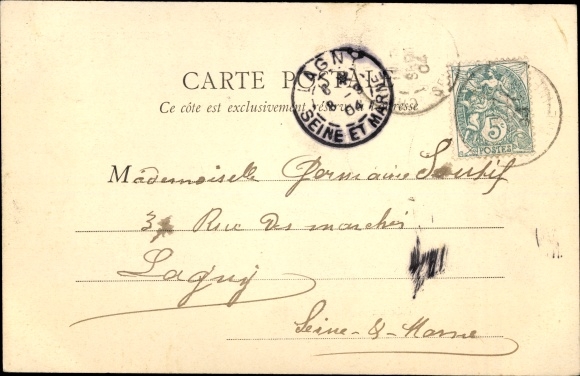 CARTE POSTALE
Ce côté est exclusivement réservé à l'adresse
LAGNY
8
04
SEINE ET MARNE
04
5c
POSTES
Mademoiselle Germaine Soutif
3 Rue des marchés
Lagny
Seine-&-Marne